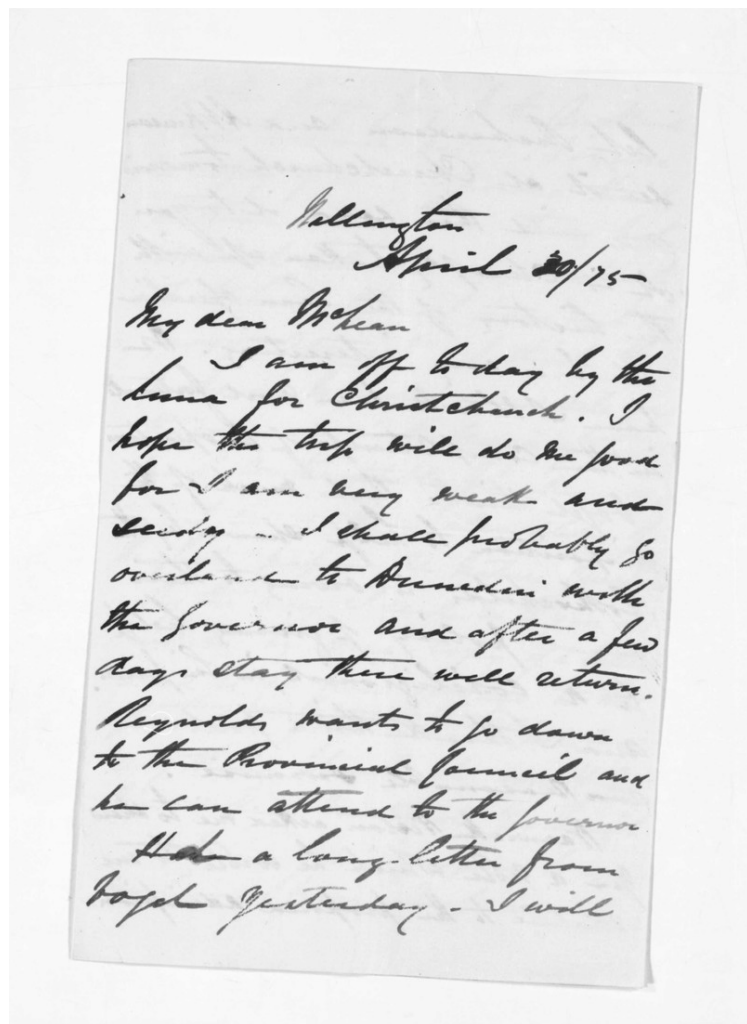 Wellington
April 20/75
My dear McLean
I am off to day by the
Luna for Christchurch. I
hope the trip will do me good
for I am very weak and
seedy - I shall probably go
overland to Dunedin with
the Governor and after a few
days stay there will return.
Reynolds wants to go down
to the Provincial Council and
he can attend to the Governor
Had a long letter from
Vogel yesterday - I will